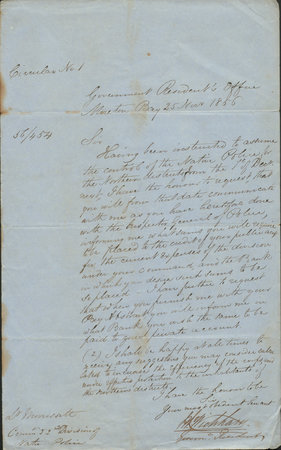 Circular No 1
Government Resident's Office
Moreton Bay 25 Nov 1856
56/454
Sir
Having been instructed to assume
the control of the Native Police in
the Northern Districts from the 1st
next I have the honour to request that
you will from that date communicate
with me as you have heretofore done
with the Inspector General of Police,
informing me what sums you will require
to be placed to the credit of your public acct
for the current expenses of the division
under your command, and the Bank
in which you design such sums to be
placed. I have further to request
that when you furnish me with your
Pay Abstract you will inform me in
what Bank you wish the same to be
paid to your private account
(2) I shall be happy at all times to
receive any suggestions you may consider calcu
lated to increase the efficiency of the corps and
more effective protection to the inhabitants of
the northern districts
I have the honour to be
Your most obedient servant
Governt Resident
Comm'd 3d Division of
Native Police